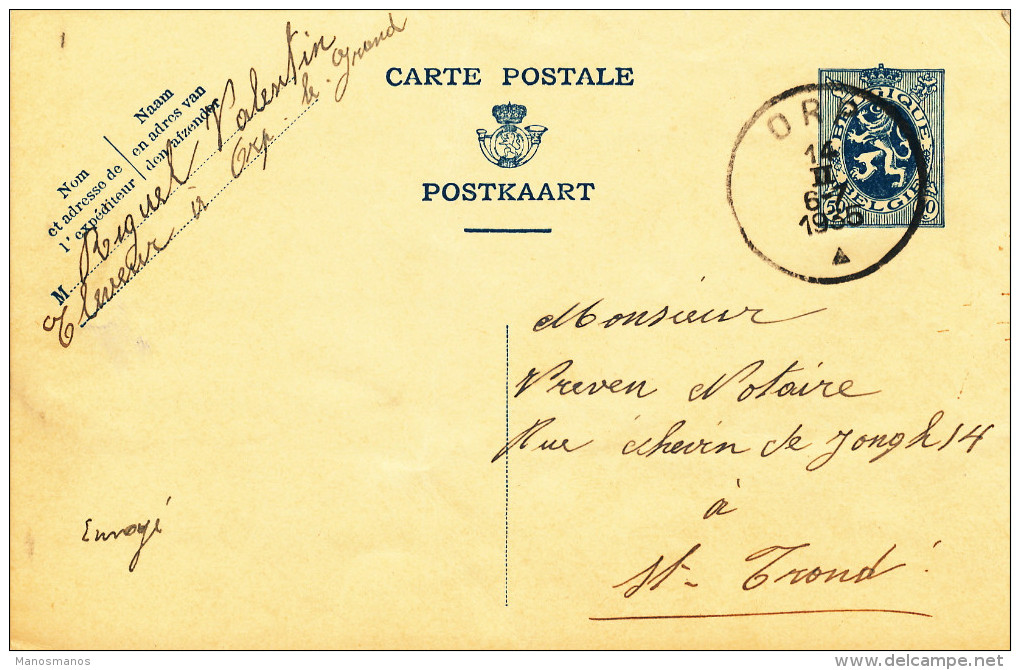 CARTE POSTALE
POSTKAART
Nom
et adresse de
l'expéditeur
Naam
en adres van
den afzender
M Riquet Valentin
Eleveur à Orp le Grand
ORP
14
II
1935
BELGIQUE
BELGIE
50
Monsieur
Preven Notaire
Rue de Jongh 14
à
St-Trond
Envoyé
Manosmanos
delcampe.net